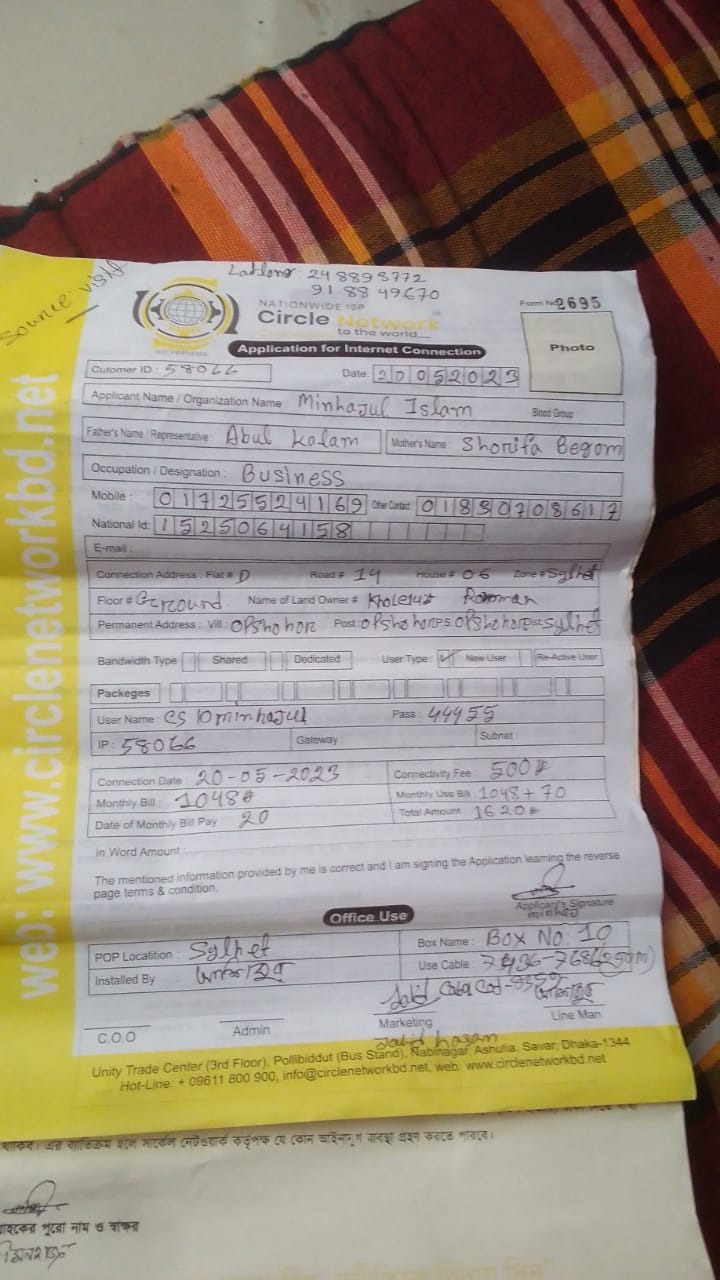 Source: visit
Latlong: 24.8898772
91.8849670
NATIONWIDE ISP
Circle Network
to the world...
Form No 2695
Application for Internet Connection
Photo
Cutomer ID : 58066
Date: 20052023
Applicant Name / Organization Name : Minhajul Islam
Blood Group :
Father's Name / Representative : Abul Kalam
Mother's Name : Shorifa Begom
Occupation / Designation : Business
Mobile : 01725524169 Other Contact : 01830708617
National Id: 1525064158
E-mail :
Connection Address : Flat # D Road # 14 House # 06 Zone # Sylhet
Floor # Ground Name of Land Owner # Rohoman
Permanent Address : Vill : OPShohor Post : OPShohor P.S. OPShohor Dist. Sylhet
Bandwidth Type Shared Dedicated User Type : ✓ New User Re-Active User
Packeges
User Name : CS10minhajul Pass : 44455
IP : 58066 Gateway : Subnet :
Connection Date : 20-05-2023
Connectivity Fee : 500
Monthly Bill : 1048
Monthly Use Bill : 1048+70
Date of Monthly Bill Pay : 20
Total Amount : 1620
In Word Amount :
The mentioned information provided by me is correct and I am signing the Application learning the reverse
page terms & condition.
Applicant's Signature
minhaj
Office Use
POP Locatition : Sylhet
Box Name : BOX NO: 10
Installed By
Use Cable :
C.O.O
Admin
Marketing
Line Man
Jahid hasan
Unity Trade Center (3rd Floor), Pollibiddut (Bus Stand), Nabinagar, Ashulia, Savar, Dhaka-1344
Hot-Line: + 09611 800 900, info@circlenetworkbd.net, web: www.circlenetworkbd.net
web: www.circlenetworkbd.net
থাকব। এর ব্যতিক্রম হলে সার্কেল নেটওয়ার্ক কর্তৃপক্ষ যে কোন আইনানুগ ব্যবস্থা গ্রহন করতে পারবে।
গ্রাহকের পুরো নাম ও স্বাক্ষর